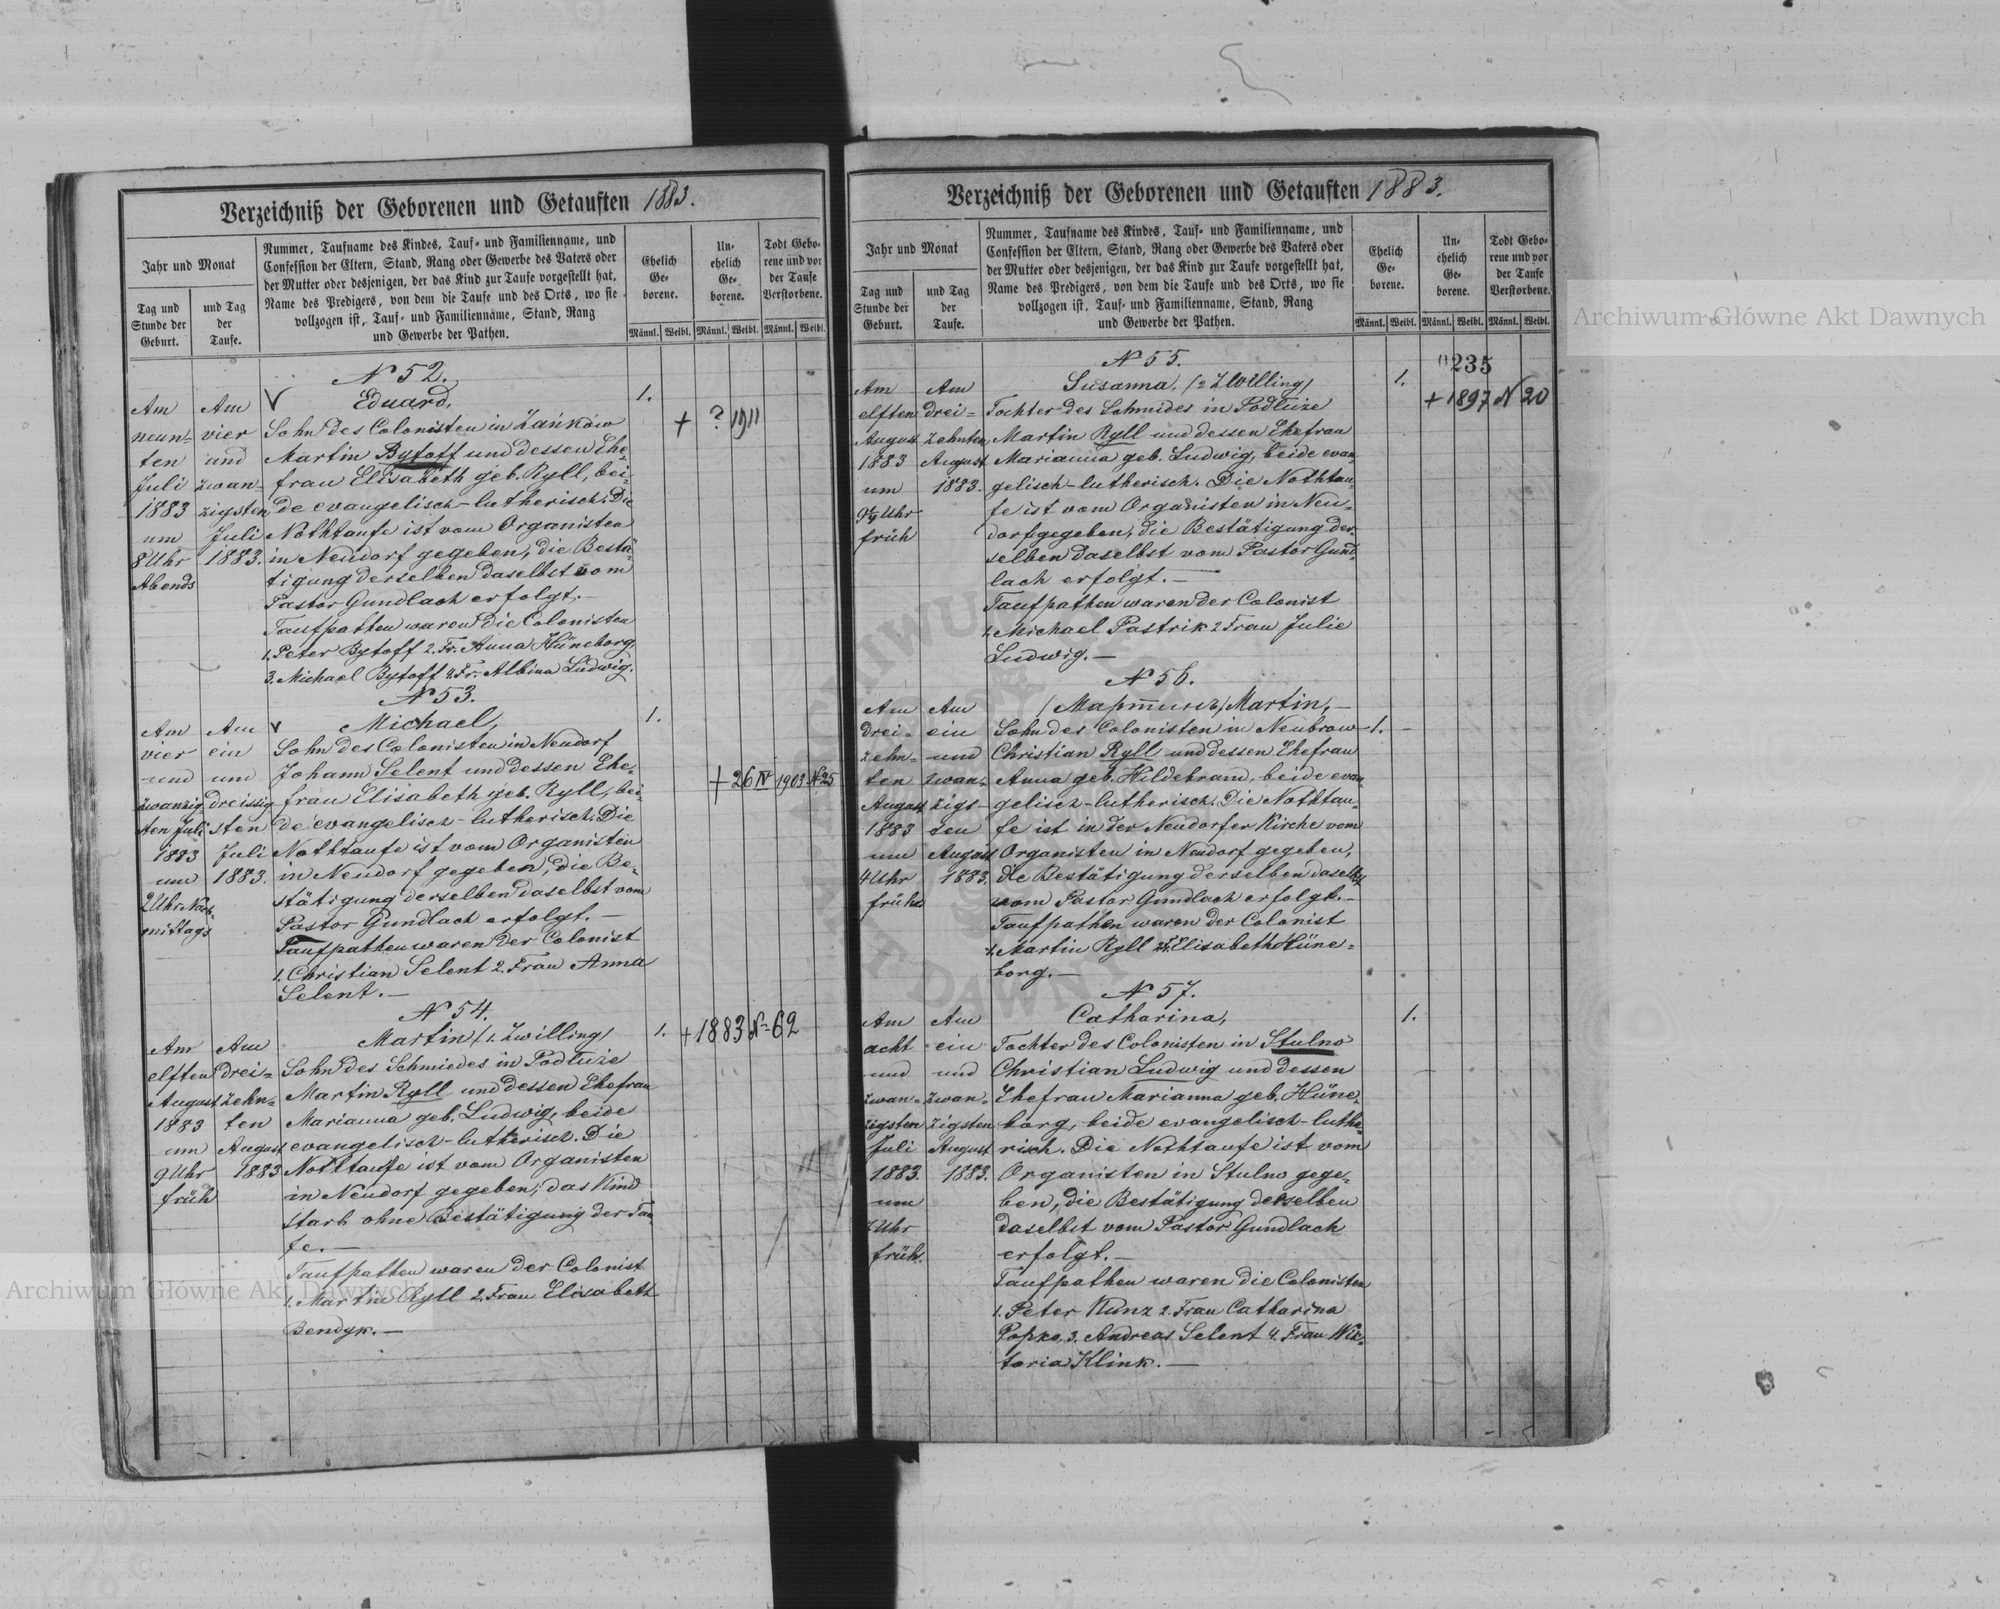 Verzeichniß der Geborenen und Getauften 1883.
Jahr und Monat
Tag und Stunde der Geburt.
und Tag der Taufe.
Nummer, Taufname des Kindes, Tauf- und Familienname, und
Confession der Eltern, Stand, Rang oder Gewerbe des Vaters oder
der Mutter oder desjenigen, der das Kind zur Taufe vorgestellt hat,
Name des Predigers, von dem die Taufe und des Orts, wo sie
vollzogen ist, Tauf- und Familienname, Stand, Rang
und Gewerbe der Pathen.
Ehelich Ge-borene.
Un-ehelich Ge-borene.
Todt Gebo-rene und vor der Taufe Verstorbene.
Männl. Weibl. Männl. Weibl. Männl. Weibl.
N 52.
V Eduard, 1.
Am neun-ten Juli 1883 um 8 Uhr Abends
Am vier und zwan-zigsten Juli 1883.
Sohn des Colonisten in Zankow
Martin Bytoff und dessen Ehe-
frau Elisabeth geb. Ryll, bei-
de evangelisch-lutherisch. Die
Nothtaufe ist vom Organisten
in Neudorf gegeben, die Bestä-
tigung derselben daselbst vom
Pastor Gundlach erfolgt.—
Taufpathen waren die Colonisten
1. Peter Bytoff 2. Fr. Anna Hüneborg.
3. Michael Bytoff 4. Fr. Albina Ludwig.
+ ? 1911
N 53.
V Michael, 1.
Am vier und zwanzig-sten Juli 1883 um 2 Uhr Nach-mittags
Am ein und dreissig-sten Juli 1883.
Sohn des Colonisten in Neudorf
Johann Selent und dessen Ehe-
frau Elisabeth geb. Ryll, bei-
de evangelisch-lutherisch. Die
Nothtaufe ist vom Organisten
in Neudorf gegeben, die Be-
stätigung derselben daselbst vom
Pastor Gundlach erfolgt.—
Taufpathen waren der Colonist
1. Christian Selent 2. Frau Anna
Selent.—
+ 26 IV 1903 N 25
N 54.
Martin /1. Zwilling/ 1.
+ 1883 N= 62
Am elften August 1883 um 9 Uhr früh
Am drei-zehn-ten August 1883
Sohn des Schmiedes in Podłuże
Martin Ryll und dessen Ehefrau
Marianna geb. Ludwig, beide
evangelisch-lutherisch. Die
Nothtaufe ist vom Organisten
in Neudorf gegeben; das Kind
starb ohne Bestätigung der Tau
fe.—
Taufpathen waren der Colonist
1. Martin Ryll 2. Frau Elisabeth
Bendyk.—
Verzeichniß der Geborenen und Getauften 1883.
Jahr und Monat
Tag und Stunde der Geburt.
und Tag der Taufe.
Nummer, Taufname des Kindes, Tauf- und Familienname, und
Confession der Eltern, Stand, Rang oder Gewerbe des Vaters oder
der Mutter oder desjenigen, der das Kind zur Taufe vorgestellt hat,
Name des Predigers, von dem die Taufe und des Orts, wo sie
vollzogen ist, Tauf- und Familienname, Stand, Rang
und Gewerbe der Pathen.
Ehelich Ge-borene.
Un-ehelich Ge-borene.
Todt Gebo-rene und vor der Taufe Verstorbene.
Männl. Weibl. Männl. Weibl. Männl. Weibl.
235
N 55.
Susanna, /2 Zwilling/ 1.
+ 1897 N 20
Am elften August 1883 um 9¼ Uhr früh
Am drei-zehnten August 1883.
Tochter des Schmides in Podłuże
Martin Ryll und dessen Ehefrau
Marianna geb. Ludwig, beide evan-
gelisch-lutherisch. Die Nothtau-
fe ist vom Organisten in Neu-
dorf gegeben, die Bestätigung der-
selben daselbst vom Pastor Gund-
lach erfolgt.—
Taufpathen waren der Colonist
1. Michael Pastrik 2 Frau Julie
Ludwig.—
N 56.
/Мартинъ/ Martin,—
Am drei-zehn-ten August 1883 um 4 Uhr früh
Am ein und zwan-zigs-ten August 1883.
Sohn des Colonisten in Neubrow— 1.
Christian Ryll und dessen Ehefrau
Anna geb. Hildebrand, beide evan-
gelisch-lutherisch. Die Nothtau-
fe ist in der Neudorfer Kirche vom
Organisten in Neudorf gegeben,
die Bestätigung derselben daselbst
vom Pastor Gundlach erfolgt.—
Taufpathen waren der Colonist
1. Martin Ryll 2. Fr. Elisabeth Hüne-
borg.—
N 57.
Catharina, 1.
Am acht und zwan-zigsten Juli 1883. um Uhr früh.
Am ein und zwan-zigsten August 1883.
Tochter des Colonisten in Stulno
Christian Ludwig und dessen
Ehefrau Marianna geb. Hüne-
borg, beide evangelisch-luthe-
risch. Die Nothtaufe ist vom
Organisten in Stulno gege-
ben, die Bestätigung derselben
daselbst vom Pastor Gundlach
erfolgt.—
Taufpathen waren die Colonisten
1. Peter Kunz 2. Frau Catharina
Popko, 3. Andreas Selent 4. Frau Wik-
toria Klink.—
Archiwum Główne Akt Dawnych
Archiwum Główne Akt Dawnych